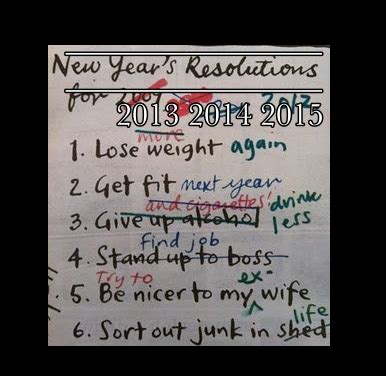 New Year's Resolutions
for 2009 2012
2013 2014 2015
more
1. Lose weight again
2. Get fit next year
and cigarettes! drink
3. Give up alcohol less
find job
4. Stand up to boss
Try to ex-
5. Be nicer to my ^ wife
life
6. Sort out junk in shed